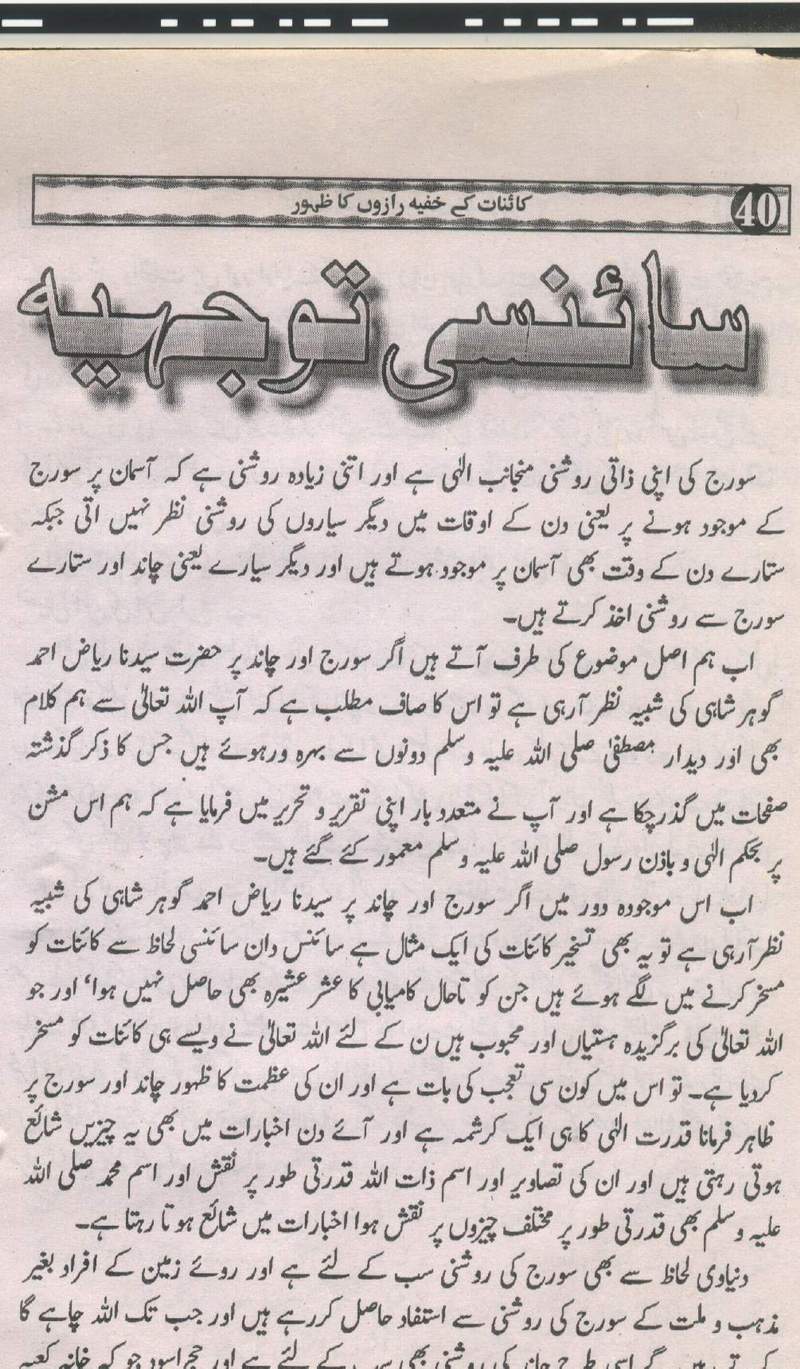 40
کائنات کے خفیہ رازوں کا ظہور
سائنسی توجہیہ
سورج کی اپنی ذاتی روشنی منجانب الٰہی ہے اور اتنی زیادہ روشنی ہے کہ آسمان پر سورج
کے موجود ہونے پر یعنی دن کے اوقات میں دیگر سیاروں کی روشنی نظر نہیں اتی جبکہ
ستارے دن کے وقت بھی آسمان پر موجود ہوتے ہیں اور دیگر سیارے یعنی چاند اور ستارے
سورج سے روشنی اخذ کرتے ہیں۔
اب ہم اصل موضوع کی طرف آتے ہیں اگر سورج اور چاند پر حضرت سیدنا ریاض احمد
گوہر شاہی کی شبیہ نظر آرہی ہے تو اس کا صاف مطلب ہے کہ آپ اللہ تعالیٰ سے ہم کلام
بھی اور دیدار مصطفیٰ صلی اللہ علیہ وسلم دونوں سے بہرہ ورہوئے ہیں جس کا ذکر گذشتہ
صفحات میں گذرچکا ہے اور آپ نے متعدد بار اپنی تقریر و تحریر میں فرمایا ہے کہ ہم اس مشن
پر بحکم الٰہی و باذن رسول صلی اللہ علیہ وسلم معمور کئے گئے ہیں۔
اب اس موجودہ دور میں اگر سورج اور چاند پر سیدنا ریاض احمد گوہر شاہی کی شبیہ
نظر آرہی ہے تو یہ بھی تسخیر کائنات کی ایک مثال ہے سائنس دان سائنسی لحاظ سے کائنات کو
مسخر کرنے میں لگے ہوئے ہیں جن کو تاحال کامیابی کا عشر عشیرہ بھی حاصل نہیں ہوا، اور جو
اللہ تعالیٰ کی برگزیدہ ہستیاں اور محبوب ہیں ن کے لئے اللہ تعالیٰ نے ویسے ہی کائنات کو مسخر
کردیا ہے۔ تو اس میں کون سی تعجب کی بات ہے اور ان کی عظمت کا ظہور چاند اور سورج پر
ظاہر فرمانا قدرت الٰہی کا ہی ایک کرشمہ ہے اور آئے دن اخبارات میں بھی یہ چیزیں شائع
ہوتی رہتی ہیں اور ان کی تصاویر اور اسم ذات اللہ قدرتی طور پر نقش اور اسم محمد صلی اللہ
علیہ وسلم بھی قدرتی طور پر مختلف چیزوں پر نقش ہوا اخبارات میں شائع ہوتا رہتا ہے۔
دنیاوی لحاظ سے بھی سورج کی روشنی سب کے لئے ہے اور روئے زمین کے افراد بغیر
مذہب و ملت کے سورج کی روشنی سے استفاد حاصل کررہے ہیں اور جب تک اللہ چاہے گا
اسی طرح چاند کی روشنی بھی سب کے لئے ہے اور حجر اسود جو کہ خانہ کعبہ